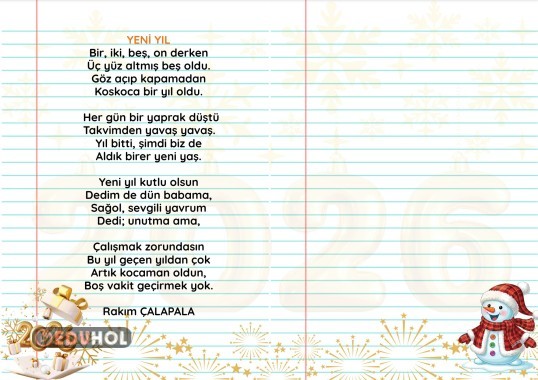 YENİ YIL
Bir, iki, beş, on derken
Üç yüz altmış beş oldu.
Göz açıp kapamadan
Koskoca bir yıl oldu.
Her gün bir yaprak düştü
Takvimden yavaş yavaş.
Yıl bitti, şimdi biz de
Aldık birer yeni yaş.
Yeni yıl kutlu olsun
Dedim de dün babama,
Sağol, sevgili yavrum
Dedi; unutma ama,
Çalışmak zorundasın
Bu yıl geçen yıldan çok
Artık kocaman oldun,
Boş vakit geçirmek yok.
Rakım ÇALAPALA
2026
EDUHOL